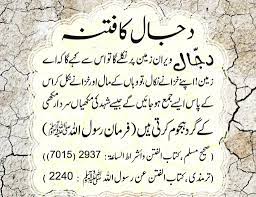 دجال کا فتنہ
دجّال ویران زمین پر نکلے گا تو اس سے کہے گا کہ اے
زمین! اپنے خزانے نکال، تو وہاں کے مال اور خزانے نکل کر اس
کے پاس ایسے جمع ہو جائیں گے جیسے شہد کی مکھیاں سردار مکھی
کے گرد ہجوم کرتی ہیں (فرمان رسول اللہ ﷺ)
(صحیح مسلم، کتاب الفتن وأشراط الساعۃ: 2937 (7015))
(ترمذی، کتاب الفتن عن رسول اللہ ﷺ : 2240)